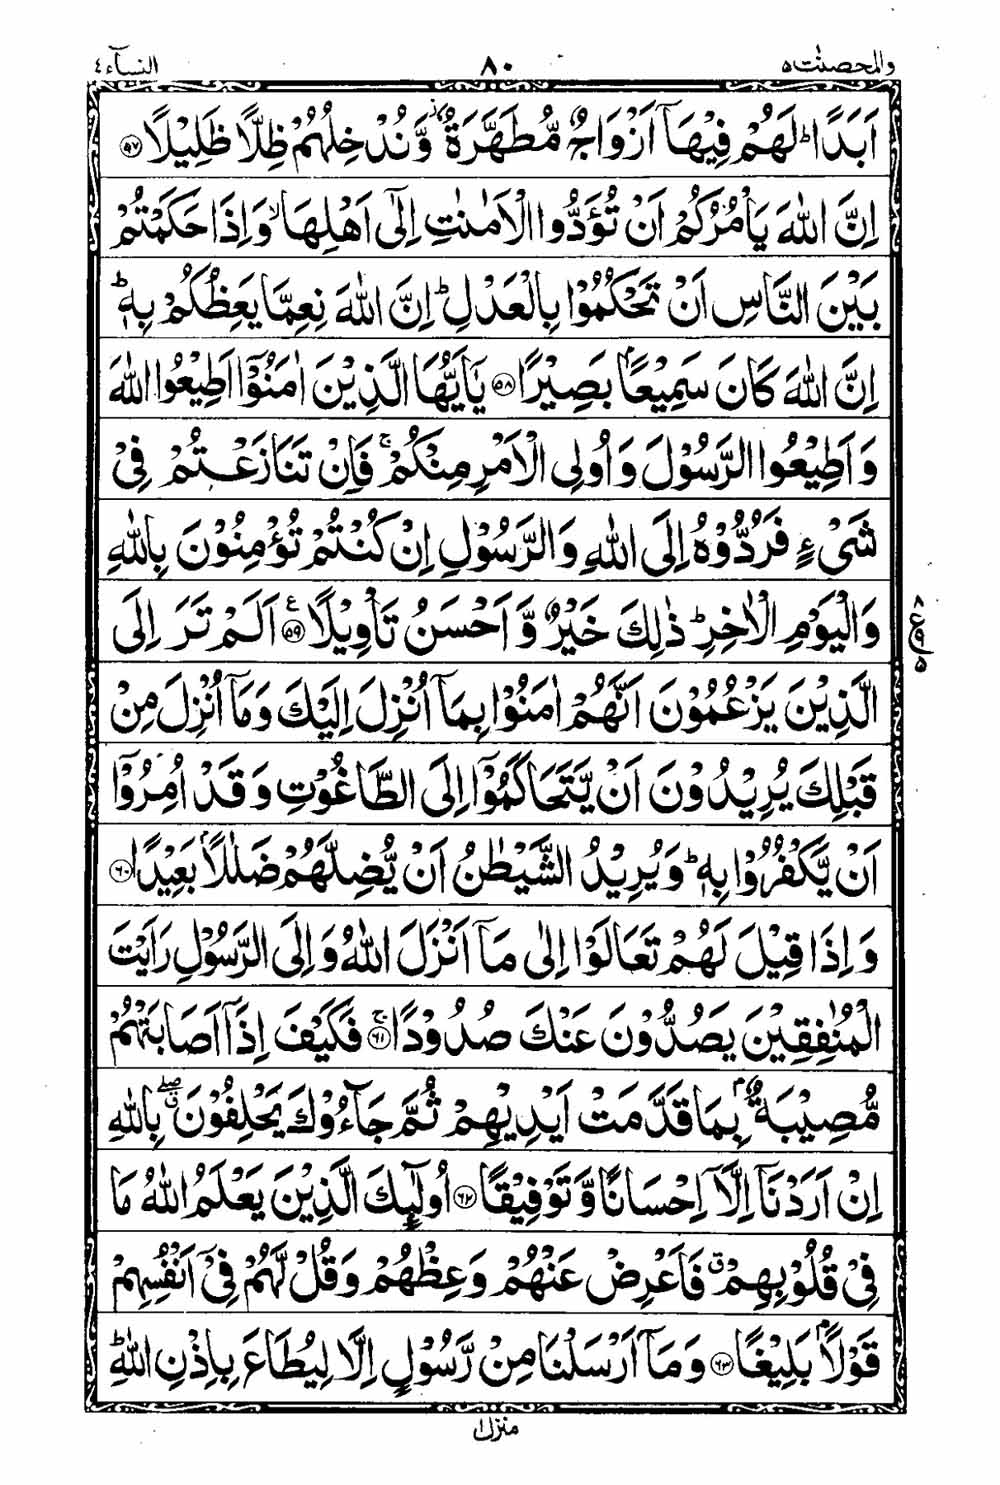 والمحصنٰت ٥ ٨٠ النسآء ٤
اَبَدًا ؕ لَهُمْ فِيْهَاۤ اَزْوَاجٌ مُّطَهَّرَةٌ ۫ وَّنُدْخِلُهُمْ ظِلًّا ظَلِيْلًا ﴿۵۷﴾
اِنَّ اللّٰهَ يَاْمُرُكُمْ اَنْ تُؤَدُّوا الْاَمٰنٰتِ اِلٰۤى اَهْلِهَا ۙ وَاِذَا حَكَمْتُمْ
بَيْنَ النَّاسِ اَنْ تَحْكُمُوْا بِالْعَدْلِ ؕ اِنَّ اللّٰهَ نِعِمَّا يَعِظُكُمْ بِهٖ ؕ
اِنَّ اللّٰهَ كَانَ سَمِيْعًۢا بَصِيْرًا ﴿۵۸﴾ يٰۤاَيُّهَا الَّذِيْنَ اٰمَنُوْۤا اَطِيْعُوا اللّٰهَ
وَاَطِيْعُوا الرَّسُوْلَ وَاُولِى الْاَمْرِ مِنْكُمْ ۚ فَاِنْ تَنَازَعْتُمْ فِىْ
شَىْءٍ فَرُدُّوْهُ اِلَى اللّٰهِ وَالرَّسُوْلِ اِنْ كُنْتُمْ تُؤْمِنُوْنَ بِاللّٰهِ
وَالْيَوْمِ الْاٰخِرِ ؕ ذٰلِكَ خَيْرٌ وَّاَحْسَنُ تَاْوِيْلًا ﴿۵۹﴾ ع اَلَمْ تَرَ اِلَى
٨ ع ٩ ٥
الَّذِيْنَ يَزْعُمُوْنَ اَنَّهُمْ اٰمَنُوْا بِمَاۤ اُنْزِلَ اِلَيْكَ وَمَاۤ اُنْزِلَ مِنْ
قَبْلِكَ يُرِيْدُوْنَ اَنْ يَّتَحَاكَمُوْۤا اِلَى الطَّاغُوْتِ وَقَدْ اُمِرُوْۤا
اَنْ يَّكْفُرُوْا بِهٖ ؕ وَيُرِيْدُ الشَّيْطٰنُ اَنْ يُّضِلَّهُمْ ضَلٰلًۢا بَعِيْدًا ﴿۶۰﴾
وَاِذَا قِيْلَ لَهُمْ تَعَالَوْا اِلٰى مَاۤ اَنْزَلَ اللّٰهُ وَاِلَى الرَّسُوْلِ رَاَيْتَ
الْمُنٰفِقِيْنَ يَصُدُّوْنَ عَنْكَ صُدُوْدًا ﴿۶۱﴾ ۚ فَكَيْفَ اِذَاۤ اَصَابَتْهُمْ
مُّصِيْبَةٌۢ بِمَا قَدَّمَتْ اَيْدِيْهِمْ ثُمَّ جَآءُوْكَ يَحْلِفُوْنَ ۖۗ بِاللّٰهِ
اِنْ اَرَدْنَاۤ اِلَّاۤ اِحْسَانًا وَّتَوْفِيْقًا ﴿۶۲﴾ اُولٰٓئِكَ الَّذِيْنَ يَعْلَمُ اللّٰهُ مَا
فِىْ قُلُوْبِهِمْ ۗ فَاَعْرِضْ عَنْهُمْ وَعِظْهُمْ وَقُلْ لَّهُمْ فِىْۤ اَنْفُسِهِمْ
قَوْلًۢا بَلِيْغًا ﴿۶۳﴾ وَمَاۤ اَرْسَلْنَا مِنْ رَّسُوْلٍ اِلَّا لِيُطَاعَ بِاِذْنِ اللّٰهِ ؕ
منزل ١